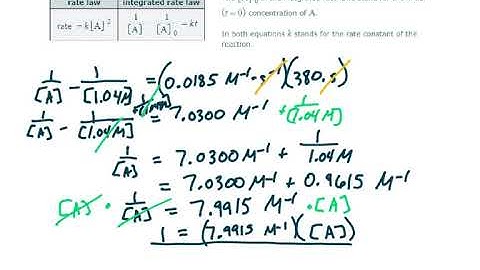 rate law integrated rate law
(t = 0) concentration of A.
rate = k[A]² 1/[A] - 1/[A]₀ = kt
In both equations k stands for the rate constant of the
reaction.
1/[A] - 1/[1.04M] = (0.0185 M⁻¹·s⁻¹)(380.s)
1/[A] - 1/[1.04M] + 1/[1.04M] = 7.0300 M⁻¹ + 1/[1.04M]
1/[A] = 7.0300 M⁻¹ + 1/1.04M
= 7.0300 M⁻¹ + 0.9615 M⁻¹
[A] · 1/[A] = 7.9915 M⁻¹ · [A]
1 = (7.9915 M⁻¹)([A])